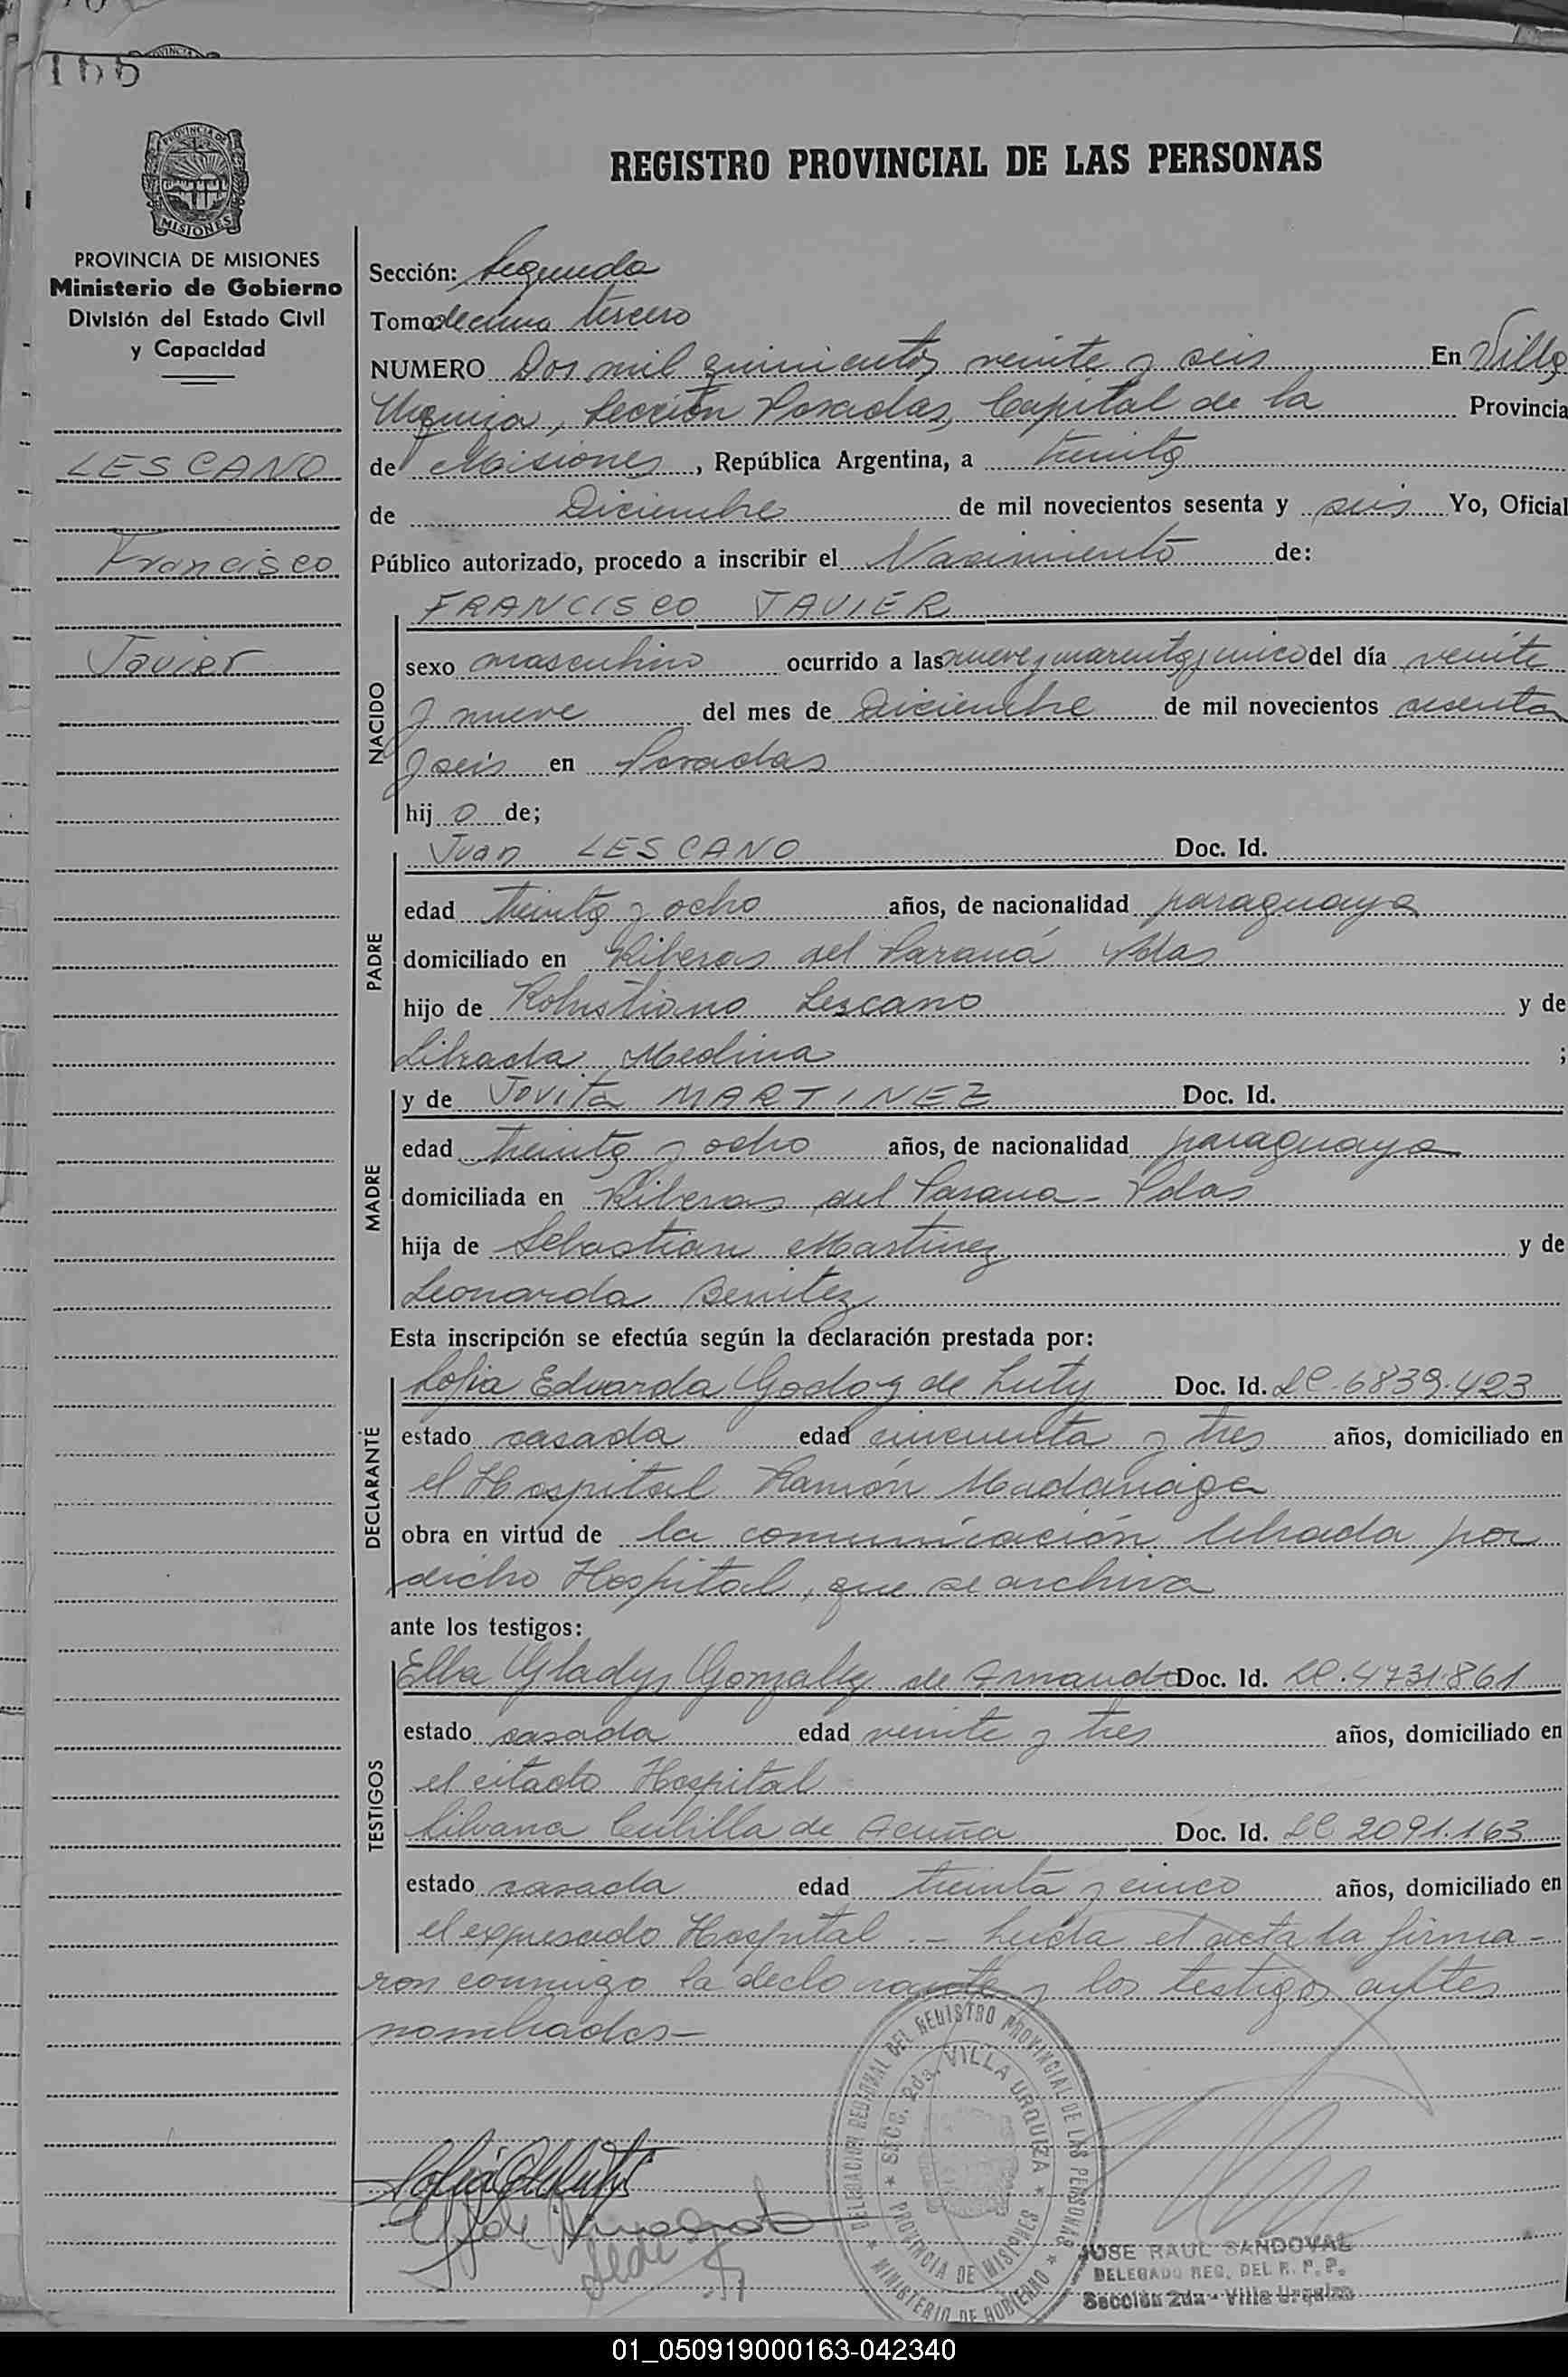 155
PROVINCIA DE MISIONES
Ministerio de Gobierno
División del Estado Civil
y Capacidad
LESCANO
Francisco
Javier
REGISTRO PROVINCIAL DE LAS PERSONAS
Sección: Segunda
Tomo decimo tercero
NUMERO Dos mil quinientos veinte y seis En Villa
Urquiza, Sección Posadas, Capital de la Provincia
de Misiones, República Argentina, a treinta
de Diciembre de mil novecientos sesenta y seis Yo, Oficial
Público autorizado, procedo a inscribir el Nacimiento de:
NACIDO
FRANCISCO JAVIER
sexo masculino ocurrido a las nueve y cuarenta y cinco del día veinte
y nueve del mes de Diciembre de mil novecientos sesenta
y seis en Posadas
hij o de;
PADRE
Juan LESCANO Doc. Id.
edad treinta y ocho años, de nacionalidad paraguaya
domiciliado en Riberas del Paraná Pdas
hijo de Robustiano Lescano y de
Librada Medina ;
MADRE
y de Jovita MARTINEZ Doc. Id.
edad treinta y ocho años, de nacionalidad paraguaya
domiciliada en Riberas del Parana - Pdas
hija de Sebastian Martinez y de
Leonarda Benitez
Esta inscripción se efectúa según la declaración prestada por:
DECLARANTE
Sofia Eduarda Godoy de Luty Doc. Id. LC. 6839.423
estado casada edad cincuenta y tres años, domiciliado en
el Hospital Ramón Madariaga
obra en virtud de la comunicación librada por
dicho Hospital, que se archiva
ante los testigos:
TESTIGOS
Elba Gladys Gonzalez de Arnaudo Doc. Id. LC. 4731.861
estado casada edad veinte y tres años, domiciliado en
el citado Hospital
Silvana Cubilla de Acuña Doc. Id. LC 2091.163
estado casada edad treinta y cinco años, domiciliado en
el expresado Hospital .- Leida el acta la firma-
ron conmigo la declarante y los testigos antes
nombrados-
DELEGACION REGIONAL DEL REGISTRO PROVINCIAL DE LAS PERSONAS
MINISTERIO DE GOBIERNO
SECC. 2da. VILLA URQUIZA
PROVINCIA DE MISIONES
JOSE RAUL SANDOVAL
DELEGADO REG. DEL R. P. P.
Sección 2da - Villa Urquiza
01_050919000163-042340